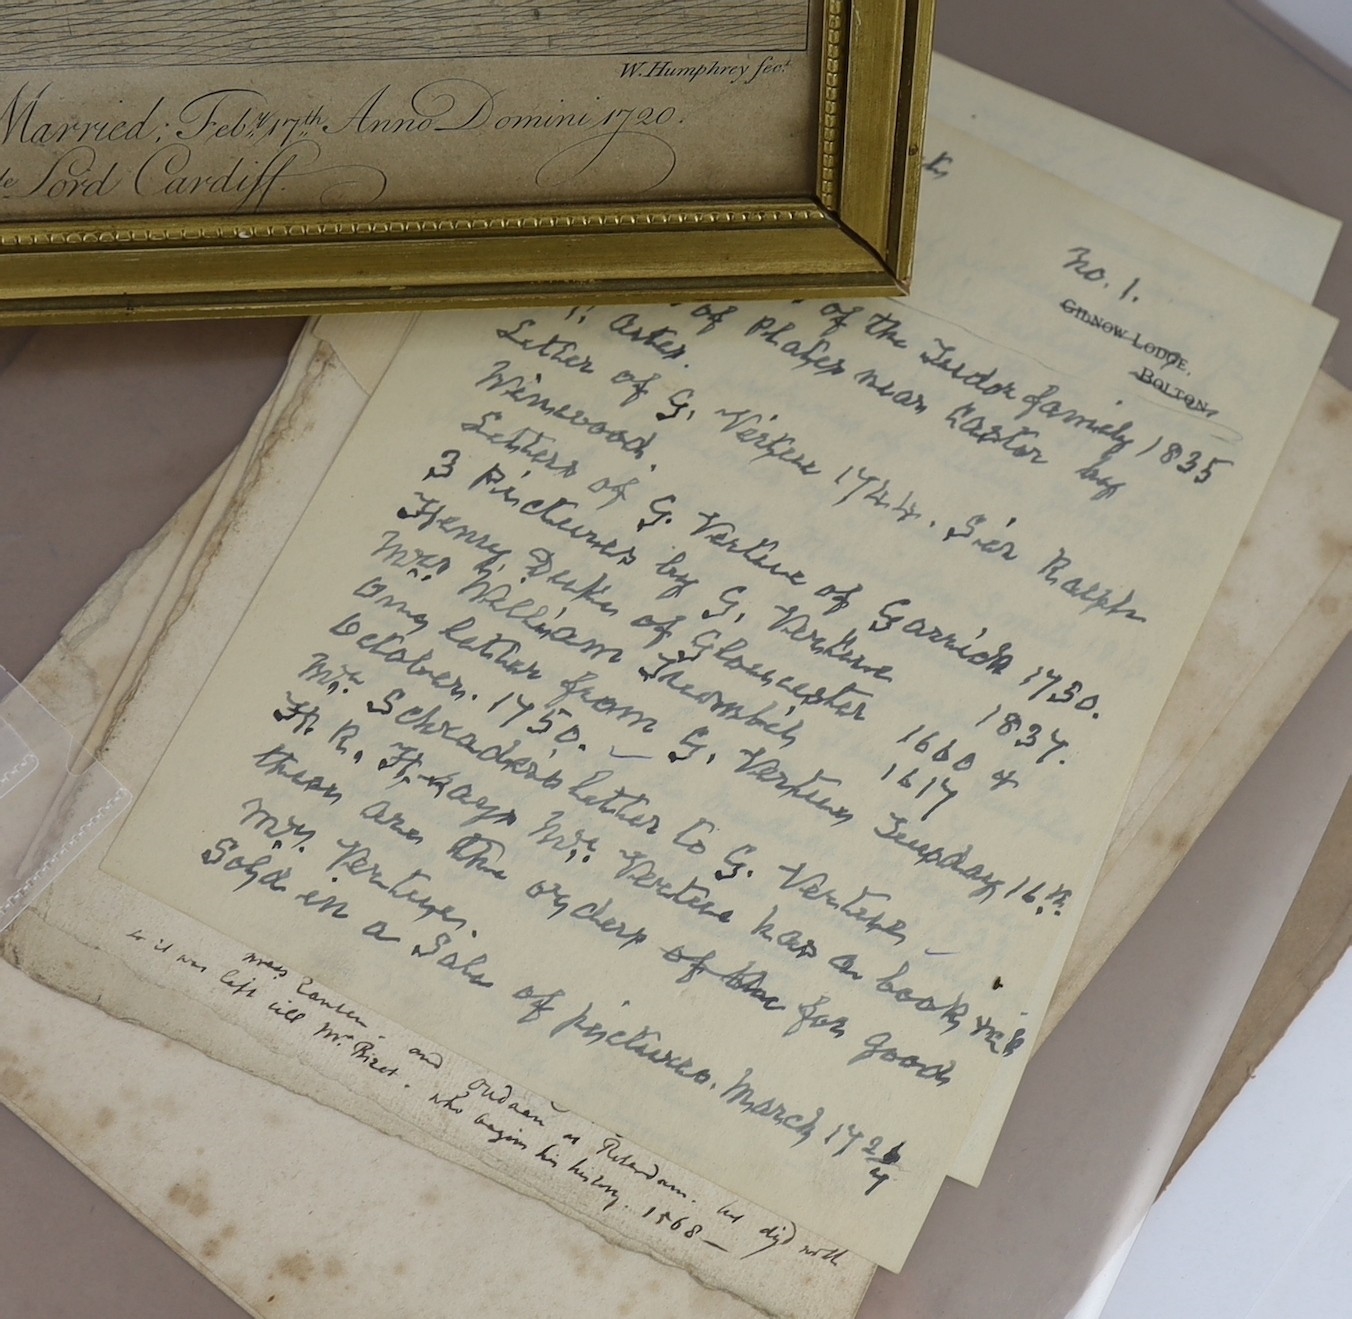 W. Humphrey fect.
Married; Feby. 17th. Anno Domini 1720.
Lord Cardiff.
No. 1.
GILNOW LODGE,
BOLTON,
of the Tudor family 1835
of Phases near Castor by
Artis.
Letter of G. Vertue 1744. Sir Ralph
Winwood.
Letters of G. Vertue of Garrick 1750.
3 Pictures by G. Vertue 1837.
Henry, Duke of Gloucester 1660 &
Mrs. William 1617
One letter from G. Vertue, Tuesday 16th.
October. 1750. —
Mr. Schrader's letter to G. Vertue. —
H. R. H. says Mr. Vertue has a book,
there are the orders of the for good
Mrs. Vertue.
Sold in a Sale of pictures. March 1726/7
and at Roterdam. but dy'd with
it was left till Mr. who begins his history. 1568 —